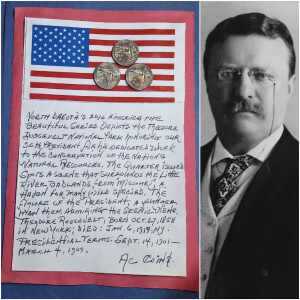 NORTH DAKOTA'S 2016 AMERICA THE
BEAUTIFUL SERIES DEPICTS THE THEODORE
ROOSEVELT NATIONAL PARK HONORING OUR
26TH PRESIDENT FOR HIS DEDICATED WORK
TO THE CONSERVATION OF THE NATION'S
NATURAL RESOURCES. THE QUARTER ISSUED
A SCENE THAT SURROUNDS THE LITTLE
RIVER, BADLANDS FROM MISSOURI, A
HAVEN FOR MANY WILD SPECIES. THE
FIGURE OF THE PRESIDENT, A YOUNGER
THEN ADMIRING THE
THEODORE ROOSEVELT, BORN OCT. 27, 1858
IN NEW YORK; DIED: JAN 6, 1919, NY.
PRESIDENTIAL TERMS: SEPT. 14, 1901 –
MARCH 4, 1909.
AC COINS.